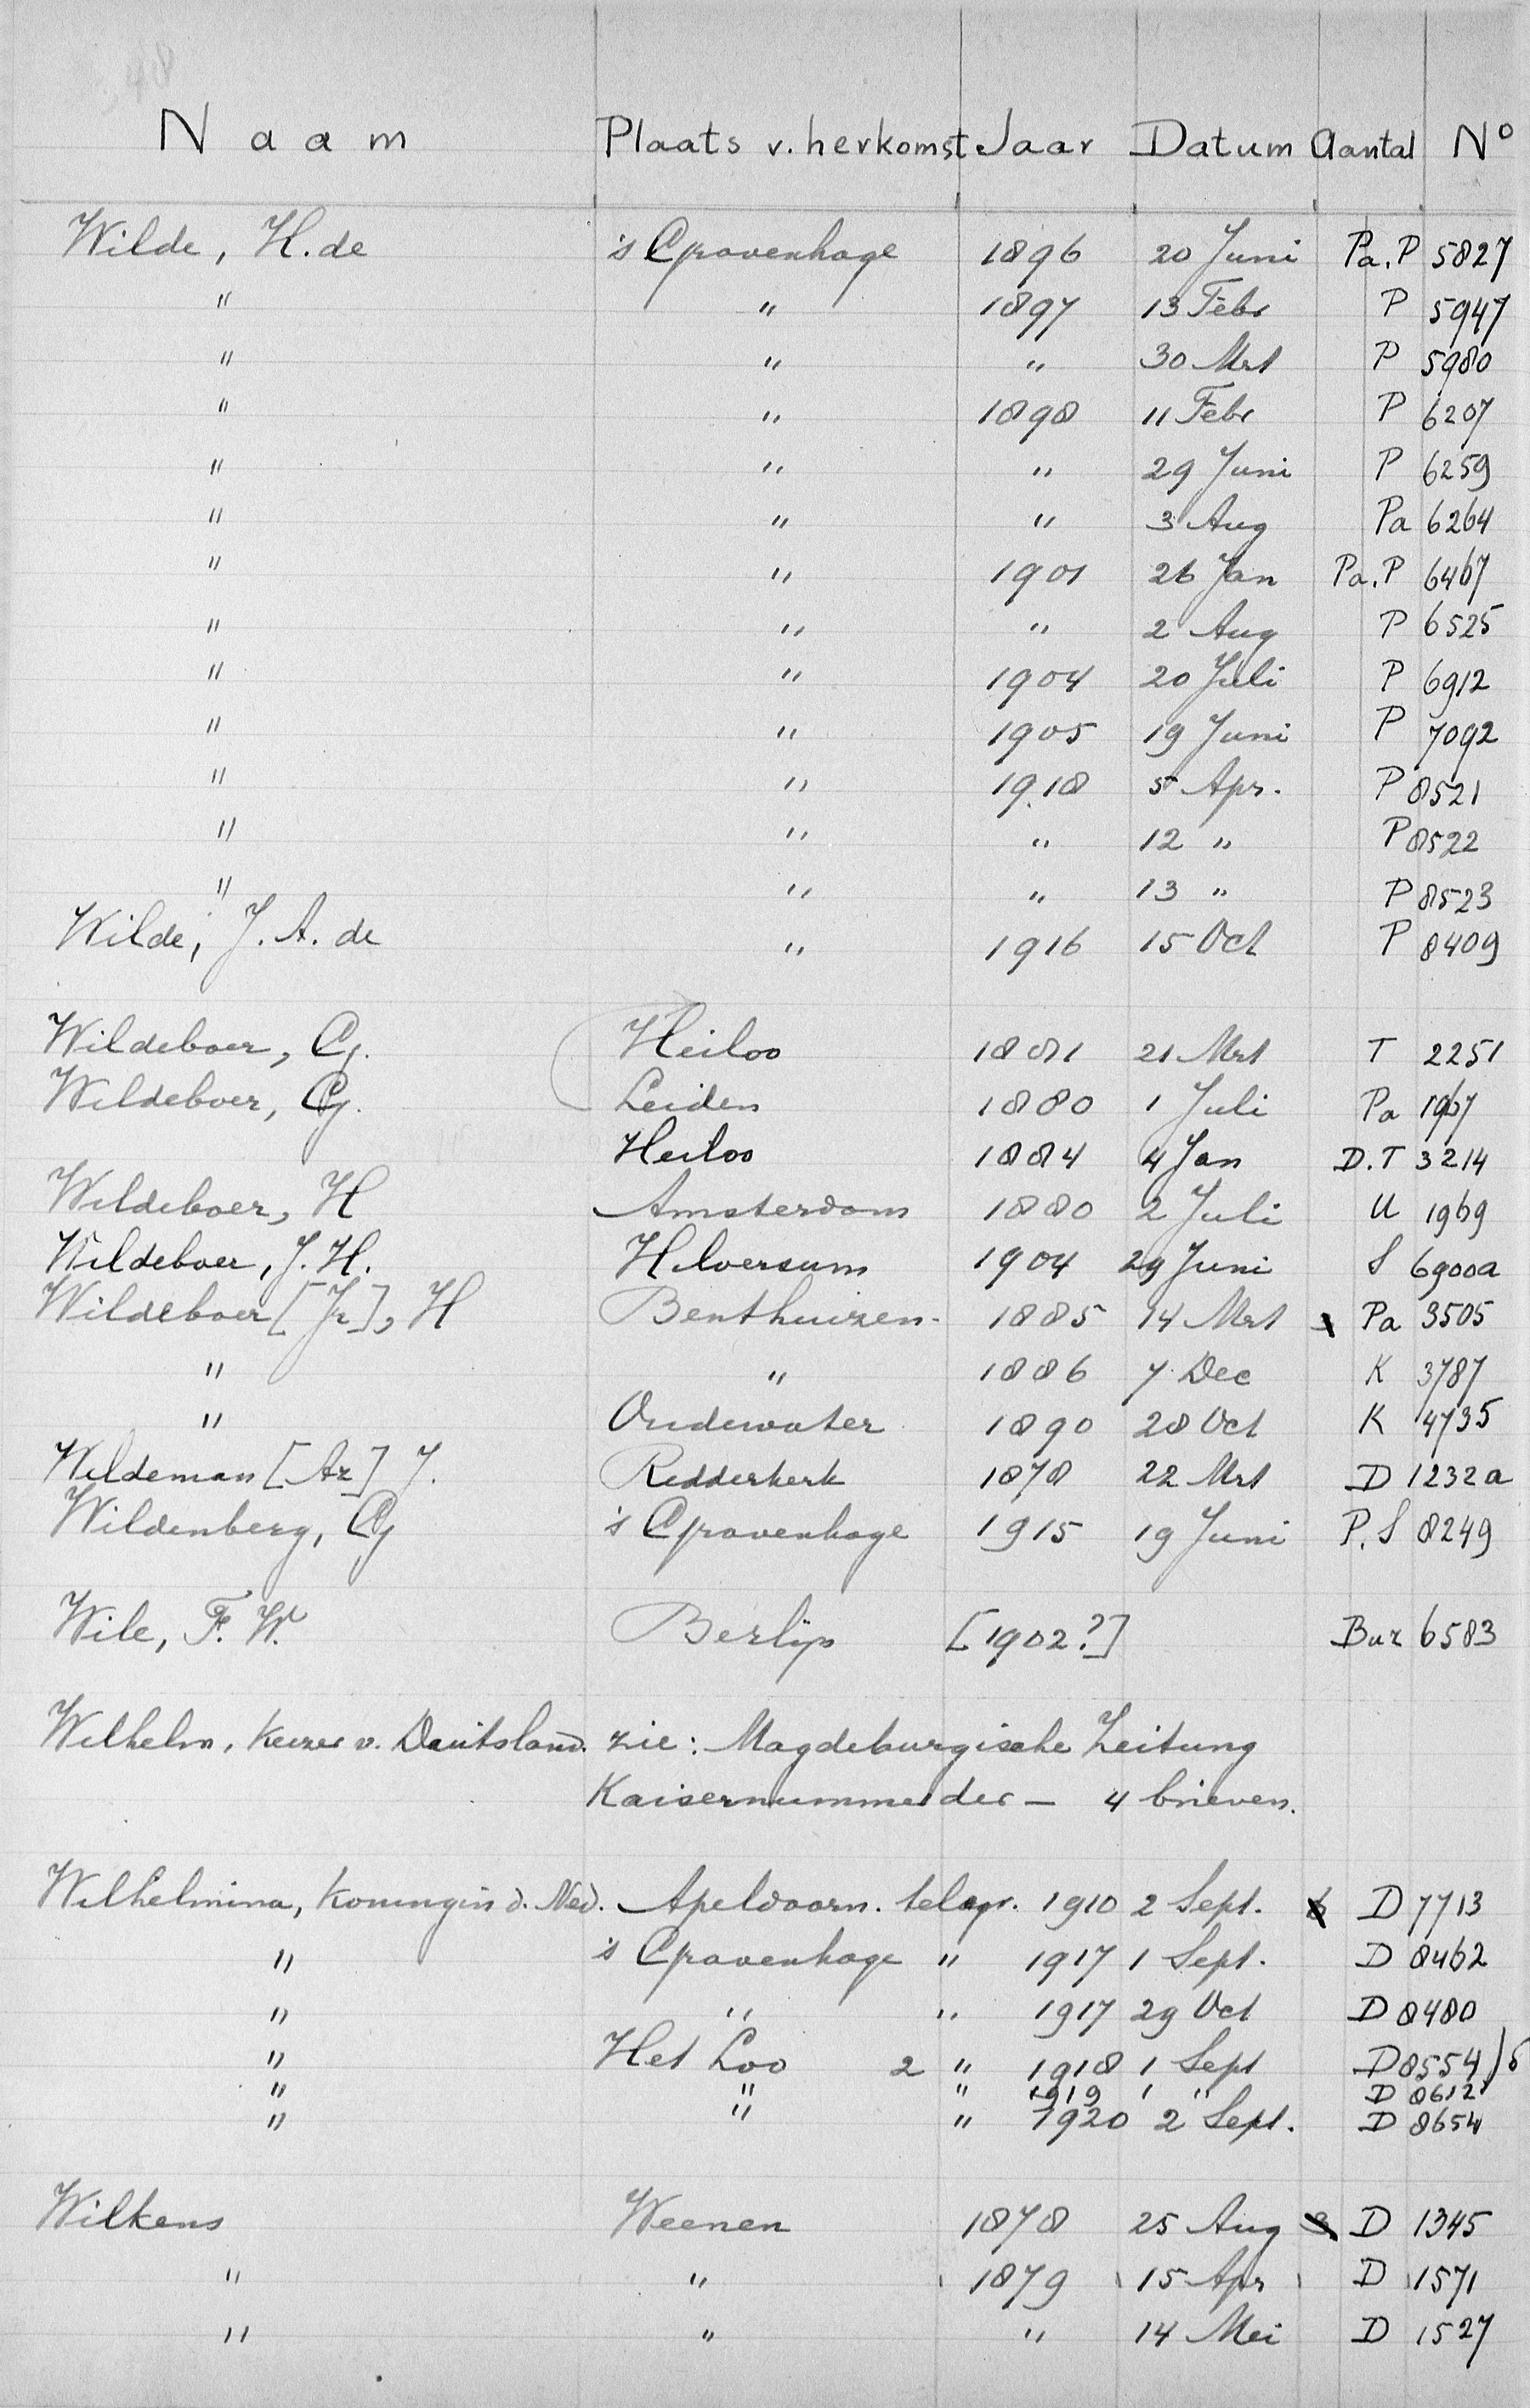 48
Naam Plaats v. herkomst Jaar Datum Aantal No
Wilde, H. de 's Gravenhage 1896 20 Juni Pa. P 5827
" " 1897 13 Febr P 5947
" " " 30 Mrt P 5980
" " 1898 11 Febr P 6207
" " " 29 Juni P 6259
" " " 3 Aug Pa 6264
" " 1901 26 Jan Pa. P 6467
" " " 2 Aug P 6525
" " 1904 20 Juli P 6912
" " 1905 19 Juni P 7092
" " 1918 5 Apr. P 8521
" " " 12 " P 8522
" " " 13 " P 8523
Wilde, J. A. de " 1916 15 Oct P 8409
Wildeboer, G. Heiloo 1881 21 Mrt T 2251
Wildeboer, G. Leiden 1880 1 Juli Pa 1967
Heiloo 1884 4 Jan D. T 3214
Wildeboer, H Amsterdam 1880 2 Juli U 1969
Wildeboer, J. H. Hilversum 1904 29 Juni S 6900a
Wildeboer [Jr], H Benthuizen 1885 14 Mrt Pa 3505
" " 1886 7 Dec K 3787
" Oudewater 1890 28 Oct K 4735
Wildeman [Az] J. Ridderkerk 1878 22 Mrt D 1232a
Wildenberg, G 's Gravenhage 1915 19 Juni P. S 8249
Wile, F. W. Berlijn [1902?] Buz 6583
Wilhelm, Keizer v. Duitsland. zie: Magdeburgische Zeitung
Kaisernummer der — 4 brieven.
Wilhelmina, Koningin d. Ned. Apeldoorn. telegr. 1910 2 Sept. D 7713
" 's Gravenhage " 1917 1 Sept. D 8462
" " " 1917 29 Oct D 8480
" Het Loo 2 " 1918 1 Sept D 8554/5
" " " 1919 1 " D 8612
" " " 1920 2 Sept. D 8654
Wilkens Weenen 1878 25 Aug D 1345
" " 1879 15 Apr D 1571
" " " 14 Mei D 1527